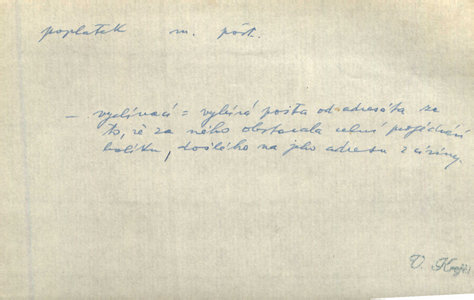 poplatek m. pošt.
— vyclívací = vybírá pošta od adresáta za
to, že za něho obstarala celní projednání
balíku, došlého na jeho adresu z ciziny.
V. Krejčí